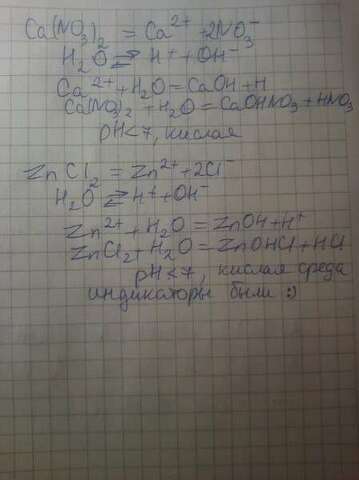 Ca(NO₃)₂ = Ca²⁺ + 2NO₃⁻
H₂O ⇄ H⁺ + OH⁻
Ca²⁺ + H₂O = CaOH + H
Ca(NO₃)₂ + H₂O = CaOHNO₃ + HNO₃
pH<7, кислая
ZnCl₂ = Zn²⁺ + 2Cl⁻
H₂O ⇄ H⁺ + OH⁻
Zn²⁺ + H₂O = ZnOH + H⁺
ZnCl₂ + H₂O = ZnOHCl + HCl
pH<7, кислая среда
индикаторы были :)